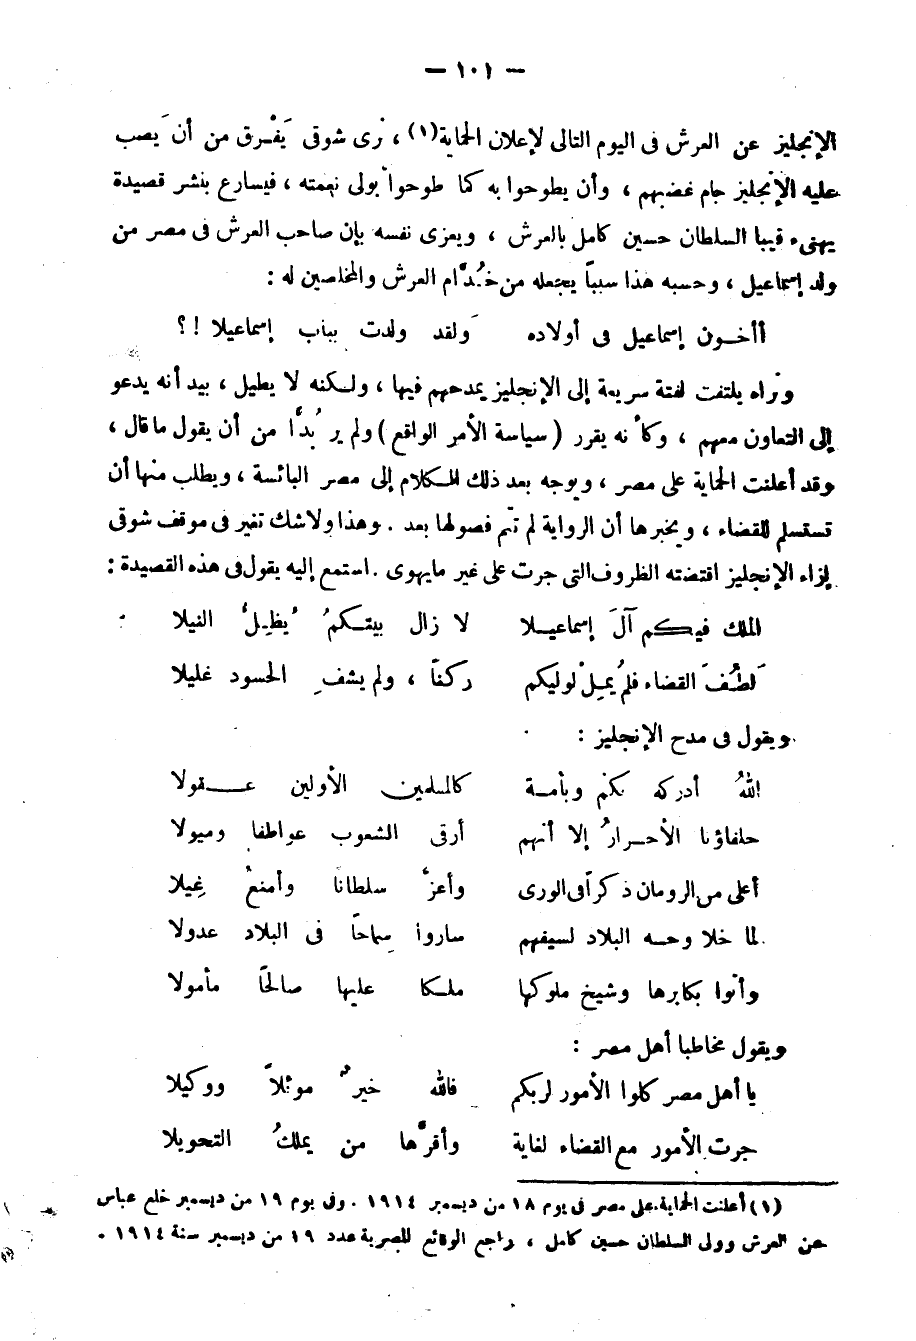 — ١٠١ —
الإنجليز عن العرش فى اليوم التالى لإعلان الحماية(١) ، نرى شوقى يَفْرق من أن يَصب
عليه الإنجليز جام غضبهم ، وأن يطوحوا به كما طوحوا بولى نعمته ، فيسارع بنشر قصيدة
يهنىء فيها السلطان حسين كامل بالعرش ، ويعزى نفسه بإن صاحب العرش فى مصر من
ولد إسماعيل ، وحسبه هذا سبباً يجعله من خُدَّام العرش والمخلصين له :
أأخــون إسماعيل فى أولاده ولقد ولدت بباب إسماعيلا !؟
ونراه يلتفت لفتة سريعة إلى الإنجليز يمدحهم فيها ، ولكنه لا يطيل ، بيد أنه يدعو
إلى التعاون معهم ، وكأنه يقرر (سياسة الأمر الواقع) ولم ير بُدًّا من أن يقول ما قال ،
وقد أعلنت الحماية على مصر ، ويوجه بعد ذلك الكلام إلى مصر البائسة ، ويطلب منها أن
تستسلم للقضاء ، ويخبرها أن الرواية لم تتم فصولها بعد . وهذا ولاشك تغير فى موقف شوقى
إزاء الإنجليز اقتضته الظروف التى جرت على غير مايهوى . استمع إليه يقول فى هذه القصيدة :
الملك فيكم آلَ إسماعيـلا لا زال بيتـكمُ يُظِلُّ النيلا
لَطُفَ القضاء فلم يُمِلْ لوليكم ركناً ، ولم يشفِ الحسود غليلا
ويقول فى مدح الإنجليز :
اللهُ أدركه بكم وبأمـة كالمسلمين الأولين عــقولا
حلفاؤنا الأحـرارُ إلا أنهم أرقى الشعوب عواطفا وميولا
أعلى من الرومان ذكراً فى الورى وأعزُّ سلطانا وأمنعُ غِيلا
لما خلا وجـه البلاد لسيفهم ساروا سِماحاً فى البلاد عدولا
وأتوا بكابرها وشيخ ملوكها ملـكا عليها صالحًا مأمولا
ويقول مخاطبا أهل مصر :
يا أهل مصر كلوا الأمور لربكم فالله خيرٌ موئلاً ووكيلا
جرت الأمور مع القضاء لغاية وأقرَّها من يملكُ التحويلا
(١) أعلنت الحماية على مصر فى يوم ١٨ من ديسمبر ١٩١٤ . وفى يوم ١٩ من ديسمبر خلع عباس
عن العرش وولى السلطان حسين كامل ، راجع الوقائع المصرية عدد ١٩ من ديسمبر سنة ١٩١٤ .